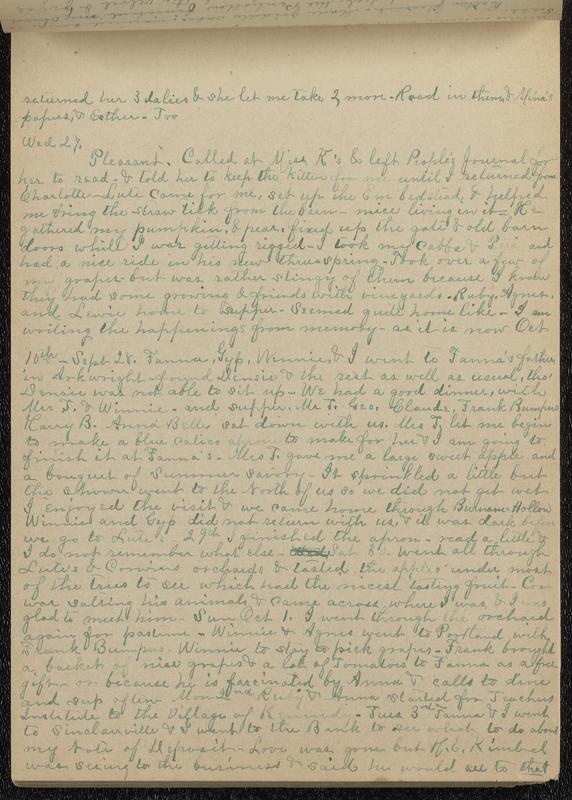 returned her 3 dalies & she let me take 3 more. Read in them & Mina's
papers, & Esther - Too
Wed 27.
Pleasant. Called at Miss K's & left People's Journal for
her to read - & told her to keep the kitten for me until I returned from
Charlotte - Lute came for me, set up the Em bedstead & helped
me bring the straw tick from the barn - mice living in it - He
gathered my pumpkin, & pear, fixed up the gate & old barn
doors while I was getting rigged - I took my and
had a nice ride in his new three-spring. Took over a few of
my grapes - but was rather stingy of them because I knew
they had some growing & friends with vineyards. Ruby, Agnes,
and Lewie home to supper. Seemed quite home like - I am
writing the happenings from memory - as it is now Oct
10th - Sept 28. Fanna, Gyp, Winnie, & I went to Fanna's father
in Arkwright - found Densie & the rest as well as usual, tho'
Densie was not able to sit up - We had a good dinner, with
Mrs T. & Winnie - and supper. Mr T. Geo, Claude, Frank Bumpus
Harry B. Anna Belle sat down with us. Mrs T. let me begin
to make a blue calico apron to make for her & I am going to
finish it at Fanna's - Mrs T. gave me a large sweet apple and
a bouquet of Summer Savory - It sprinkled a little but
the shower went to the North of us so we did not get wet
I enjoyed the visit & we came home through Hollow
Winnie and Gyp did not return with us, & it was dark before
we go to Lute's. 29th I finished the apron - read a little &
I do not remember what else - Sat 30. Went all through
Lute's & Comirus orchards & tasted the apples under most
of the trees to see which had the nicest tasting fruit - Com
was salting his animals & came across where I was, & I was
glad to meet him - Sun Oct 1. I went through the orchard
again for pastime - Winnie & Agnes went to Portland with
Frank Bumpus - Winnie to stay & pick grapes - Frank brought
a basket of nice grapes & a lot of Tomatoes to Fanna as a free
gift - or because he is fascinated by Anna & calls to dine
and sup often - Mon 2nd Ruby & Anna started for Teachers
Institute to the Village of Kennedy - Tues 3rd Fanna & I went
to Sinclairville & I went to the Bank to see what to do about
my Note of Deposit - Love was gone but H. C. Kimbel
was seeing to the business & said he would see to that